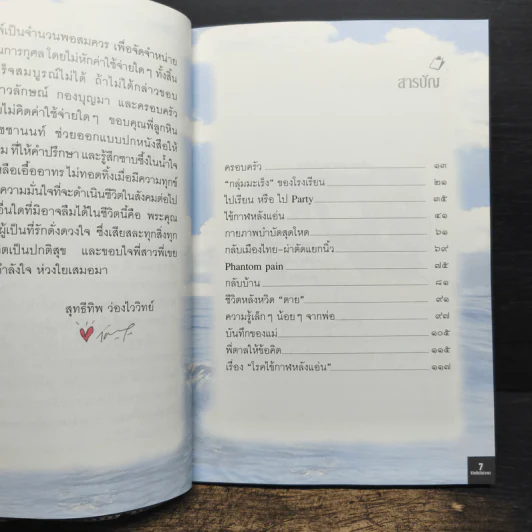 จ์เป็นจำนวนพอสมควร เพื่อจัดจำหน่าย
นการกุศล โดยไม่หักค่าใช้จ่ายใดๆ ทั้งสิ้น
ร็จสมบูรณ์ไม่ได้ ถ้าไม่ได้กล่าวขอบ
าวลักษณ์ กองบุญมา และครอบครัว
ไม่คิดค่าใช้จ่ายใดๆ ขอบคุณพี่ลูกหิน
ชชานนท์ ช่วยออกแบบปกหนังสือให้
ม ที่ให้คำปรึกษา และรู้สึกซาบซึ้งในน้ำใจ
หลือเอื้ออาทร ไม่ทอดทิ้งเมื่อมีความทุกข์
ความมั่นใจที่จะดำเนินชีวิตในสังคมต่อไป
อื่นใดที่มิอาจลืมได้ในชีวิตนี้คือ พระคุณ
ผู้เป็นที่รักดั่งดวงใจ ซึ่งเสียสละทุกสิ่งทุก
ิตเป็นปกติสุข และขอบใจพี่สาวพี่เขย
กำลังใจ ห่วงใยเสมอมา
สุทธิทิพ ว่องไววิทย์
สารบัญ
ครอบครัว ๑๓
"กลุ่มมะเร็ง" ของโรงเรียน ๒๑
ไปเรียน หรือ ไป Party ๓๕
ไข้กาฬหลังแอ่น ๔๑
กายภาพบำบัดสุดโหด ๖๑
กลับเมืองไทย-ผ่าตัดแยกนิ้ว ๖๙
Phantom pain ๗๕
กลับบ้าน ๘๑
ชีวิตหลังหวิด "ตาย" ๙๑
ความรู้เล็กๆ น้อยๆ จากพ่อ ๙๗
บันทึกของแม่ ๑๐๕
พี่ตาลให้ข้อคิด ๑๑๕
เรื่อง "โรคไข้กาฬหลังแอ่น" ๑๑๗
7